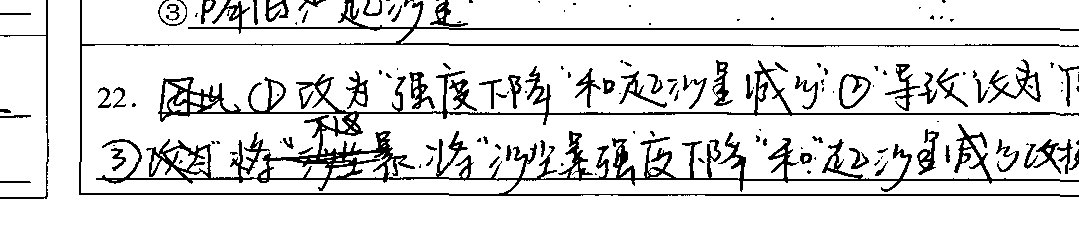 ③降低 起沙量
22. ①改为"强度下降"和起沙量减少"②"导致"改为"
③改为 将"将"沙尘暴强度下降"和"起沙量减少改